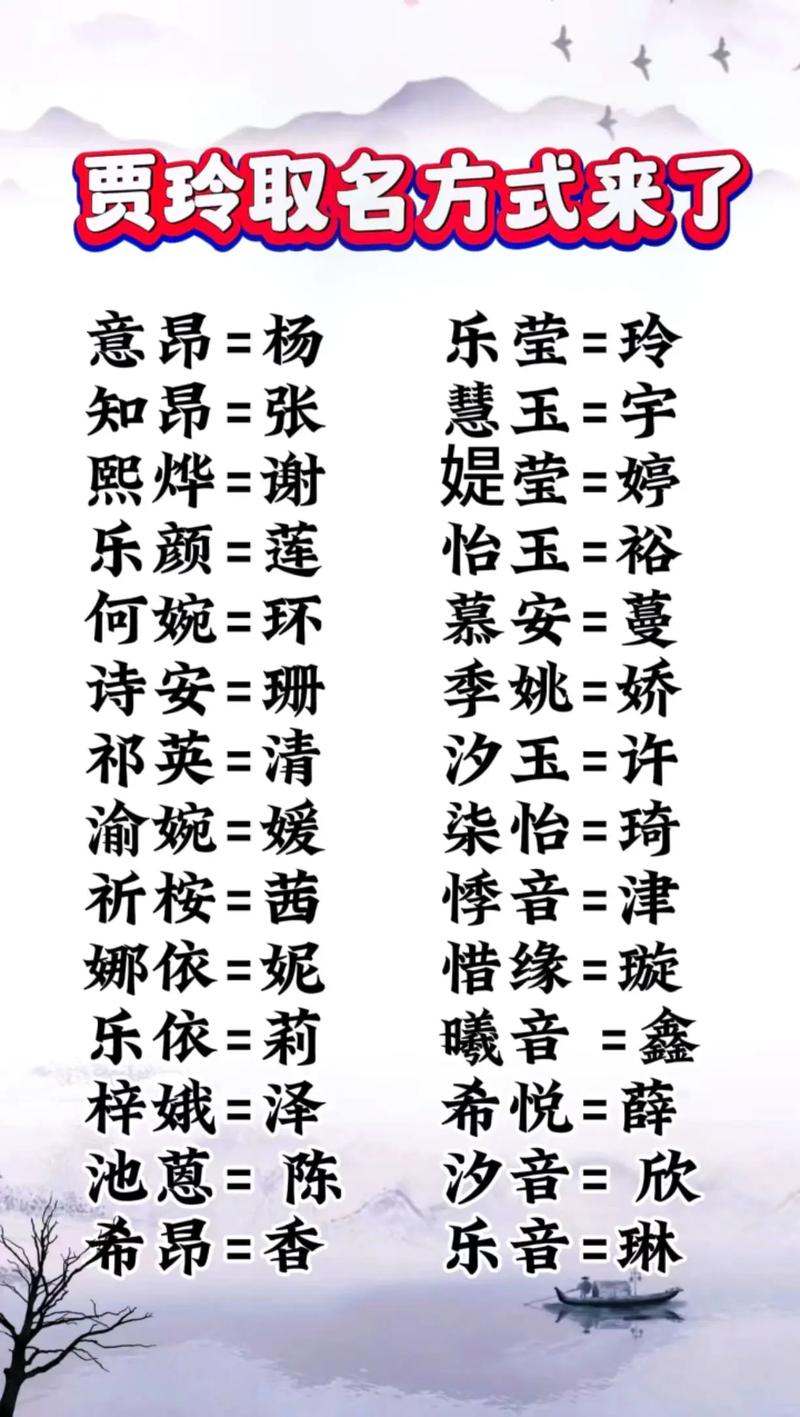 贾玲取名方式来了
意昂=杨 乐莹=玲
知昂=张 慧玉=宇
熙烨=谢 媞莹=婷
乐颜=莲 怡玉=裕
何婉=环 慕安=蔓
诗安=珊 季姚=娇
祁英=清 汐玉=许
渝婉=媛 柒怡=琦
祈桉=茜 悸音=津
娜依=妮 惜缘=璇
乐依=莉 曦音 =鑫
梓娥=泽 希悦=薛
池蒽= 陈 汐音= 欣
希昂=香 乐音=琳